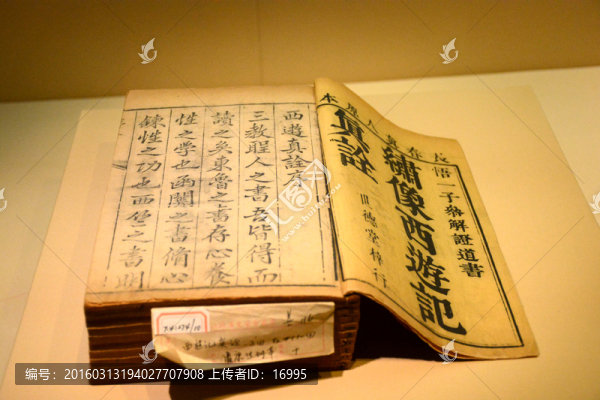 長春真人原本
悟一子參解證道書
繡像西遊記
真詮
德堂梓行
西遊真詮序
三教聖人之書吾皆得而
讀之矣東魯之書存心養
性之學也函關之書脩心
鍊性之功也西竺之書明
编号：20160313194027707908 上传者ID：16995